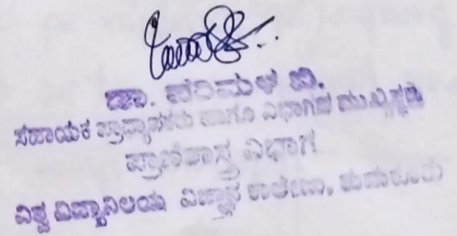 ಡಾ. ಪರಿಮಳ ಬಿ.
ಸಹಾಯಕ ಪ್ರಾಧ್ಯಾಪಕರು ಹಾಗೂ ವಿಭಾಗದ ಮುಖ್ಯಸ್ಥರು
ಪ್ರಾಣಿಶಾಸ್ತ್ರ ವಿಭಾಗ
ವಿಶ್ವವಿದ್ಯಾನಿಲಯ ವಿಜ್ಞಾನ ಕಾಲೇಜು, ತುಮಕೂರು